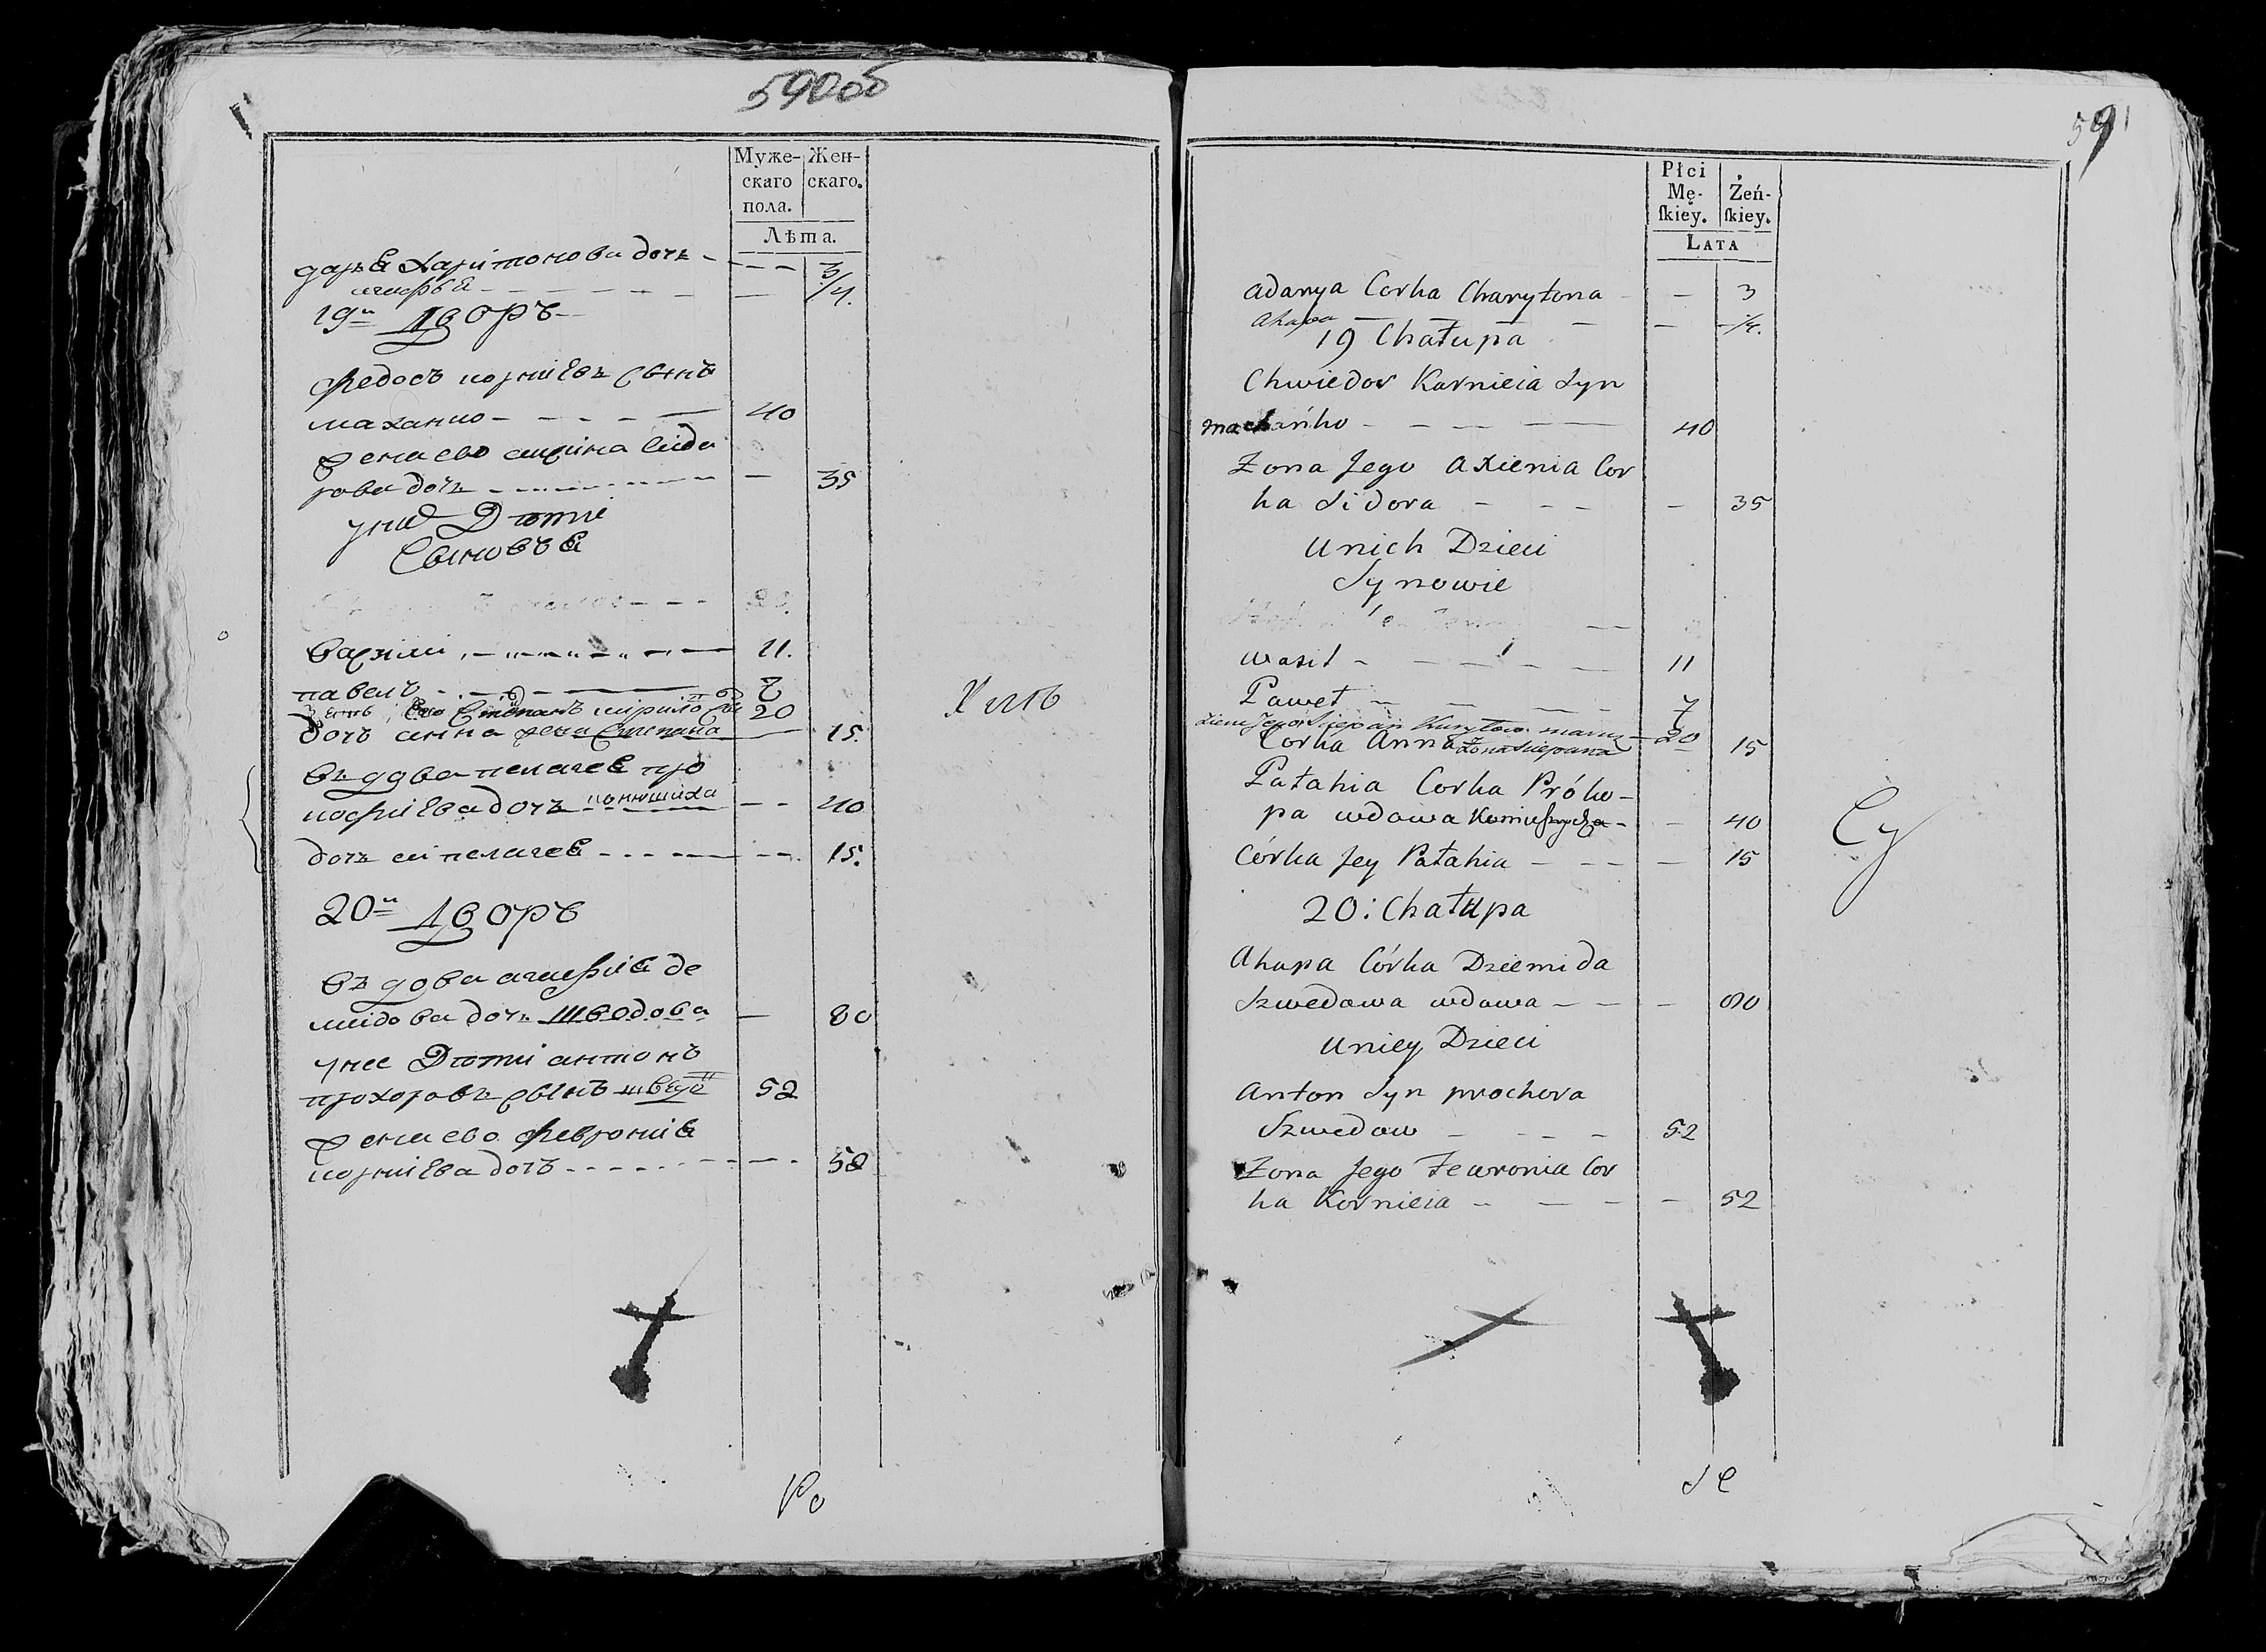 590об
Муже-
скаго
пола.
Жен-
скаго.
Лѣта.
дарья Харитонова дочь - - - - 3
агафья - - - - - - - - 1/4.
19й Дворъ
Федосъ корнѣевъ сынъ
маханко - - - - - 40
жена его аксинa сидо
рова дочь - - - - - 35
у них Дѣти
Сыновья
василь - - - - - 11.
павелъ - - - - - 7
зять его Степанъ кирило 20
дочь анна жена Степана 15.
вьдова пелагея про
кофиева дочь конюшиха - - 40
дочь ей пелагея - - - - - 15.
20й Дворъ
вьдова агафия де
мидова дочь шводова — 80
у нее Дѣти антонъ
прохоровъ сынъ 52
жена его феврония
корниева дочь - - - - - 52
Хить
591
Płci
Mę-
ſkiey.
Żeń-
ſkiey.
Lata
Adarya Corka Charytona - — 3
Ahapa — — — — — 1/4.
19 Chałupa
Chwiedor Karnieia Syn
machańko - - - — — 40
Zona Jego Axienia Cor
ka Sidora - - - - 35
Unich Dzieci
Synowie
Wasil - - - - - 11
Paweł - - - - - 7
Ziencz Jego Sciepan Kuryłow 20
Corka Anna Zona Sciepana 15
Pałahia Corka Próko-
pa wdowa Koniuszycha - - 40
Córka Jey Pałahia — - - — 15
20: Chałupa
Ahapa Córka Dziemida
Szwedowa wdowa — — - 80
Uniey Dzieci
Anton Syn prochora
Szwedow - - - - 52
Zona Jego Fewronia Cor
ka Kornieia - — - - 52